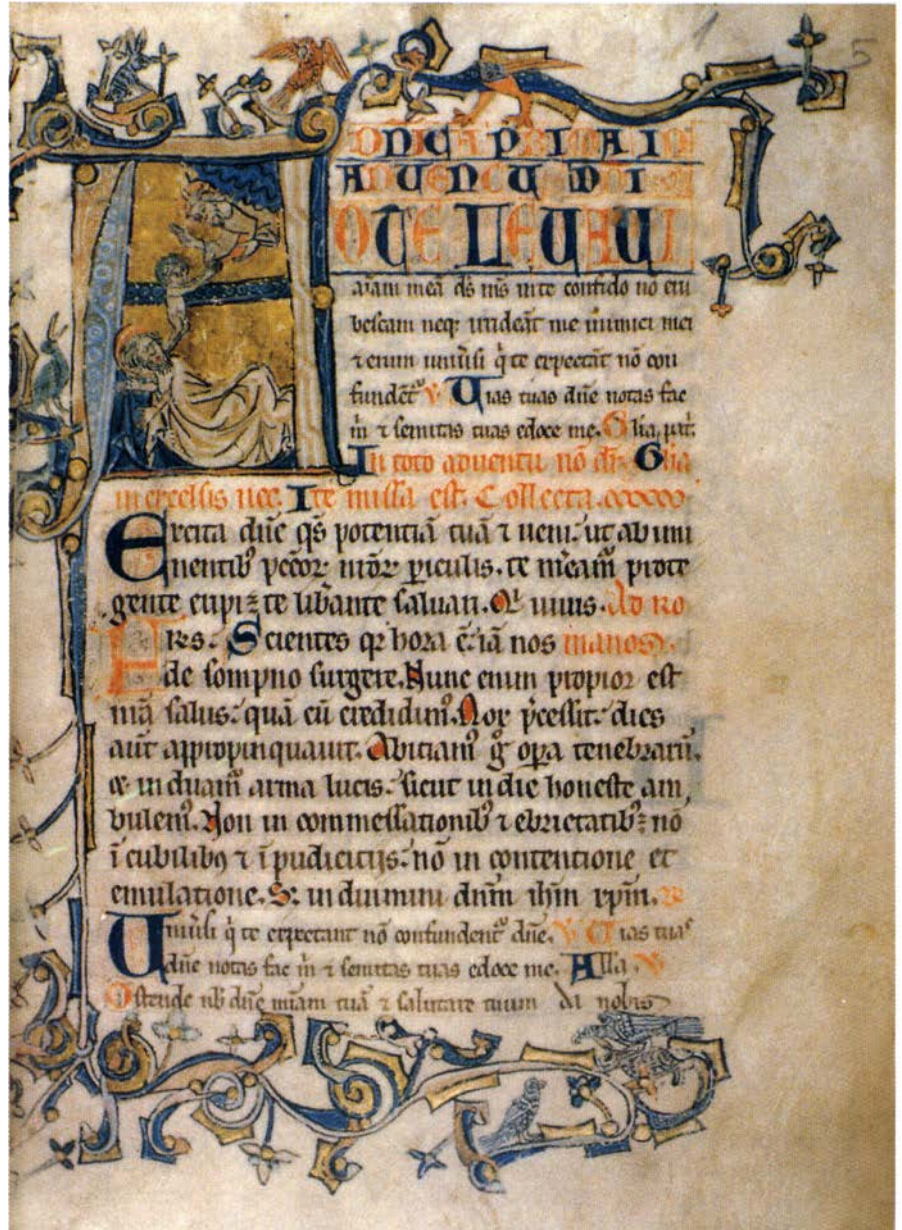 1
5
DNĪCA PRIMA IN
ADVENCV DNI
AD TE LEVAVI
aīam meā ds ms in te confido nō eru
bescam neq; irrideāt me inimici mei
⁊ enim uniūsi q̇ te expectāt nō con
fundent᷑ V Uias tuas dūe notas fac
m̄ ⁊ semitas tuas edoce me. Glia. pat.
In toto aduentu nō dr̄. Glia
in excelsis nec. Ite missa est. Collecta.
Excita dūe qs̄ potentiā tuā ⁊ ueni. ut ab imi
nentib᷒ pccōr nrōr ꝑiculis. te m̄eam᷒ prote
gente eripi ⁊ te libāte saluari. Q̇ı uiuis. Ad ro
Frēs. Scientes qr hora ē. iā nos manos.
de sompno surgere. Nunc enim propior est
nr̄a salus. quā cū credidim᷒. Nox p̄cessit. dies
aūt appropinquauit. Abiciam᷒ g̊ oꝑa tenebrarū.
⁊ induam᷒ arma lucis. sicut in die honeste am
bulem᷒. Non in commessationib᷒ ⁊ ebrietatib᷒. nō
ī cubilib᷒ ⁊ īpudicitijs. nō in contentione et
emulatione. S; induimini dnm̄ ihm̄ xpm̄. R
Uniūsi q̇ te expectant nō confundent᷑ dūe. V Uias tuas
dūe notas fac m̄ ⁊ semitas tuas edoce me. Alla. V
Ostende nb̄ dūe miam tuā ⁊ salutare tuum da nobis